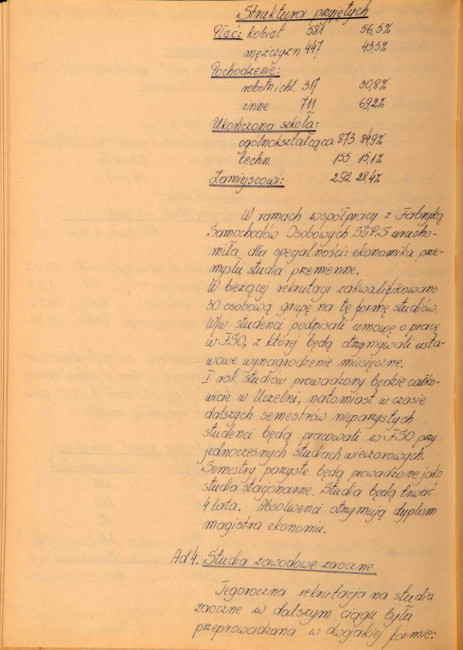 Struktura przyjętych
Płeć: kobiet 581 56,5%
mężczyzn 447 43,5%
Pochodzenie:
robotn i chł. 317 30,8%
inne 711 69,2%
Ukończona szkoła:
ogólnokształcąca 873 84,9%
techn. 155 15,1%
Zamiejscowi: 292 28,4%
W ramach współpracy z Fabryką
Samochodów Osobowych SGPiS urucho-
miła dla specjalności: ekonomika prze-
mysłu studia przemienne.
W bieżącej rekrutacji zakwalifikowano
30 osobową grupę na tę formę studiów.
W/w studenci podpisali umowę o pracę
w FSO, z której będą otrzymywali usta-
wowe wynagrodzenie miesięczne.
I rok studiów prowadzony będzie całko-
wicie w Uczelni, natomiast w czasie
dalszych semestrów nieparzystych
studenci będą pracowali w FSO przy
jednoczesnych studiach wieczorowych.
Semestry parzyste będą prowadzone jako
studia stacjonarne. Studia będą trwać
4 lata. Absolwenci otrzymują dyplom
magistra ekonomii.
Ad 4. Studia zawodowe zaoczne
Tegoroczna rekrutacja na studia
zaoczne w dalszym ciągu była
przeprowadzana w dwojakiej formie: